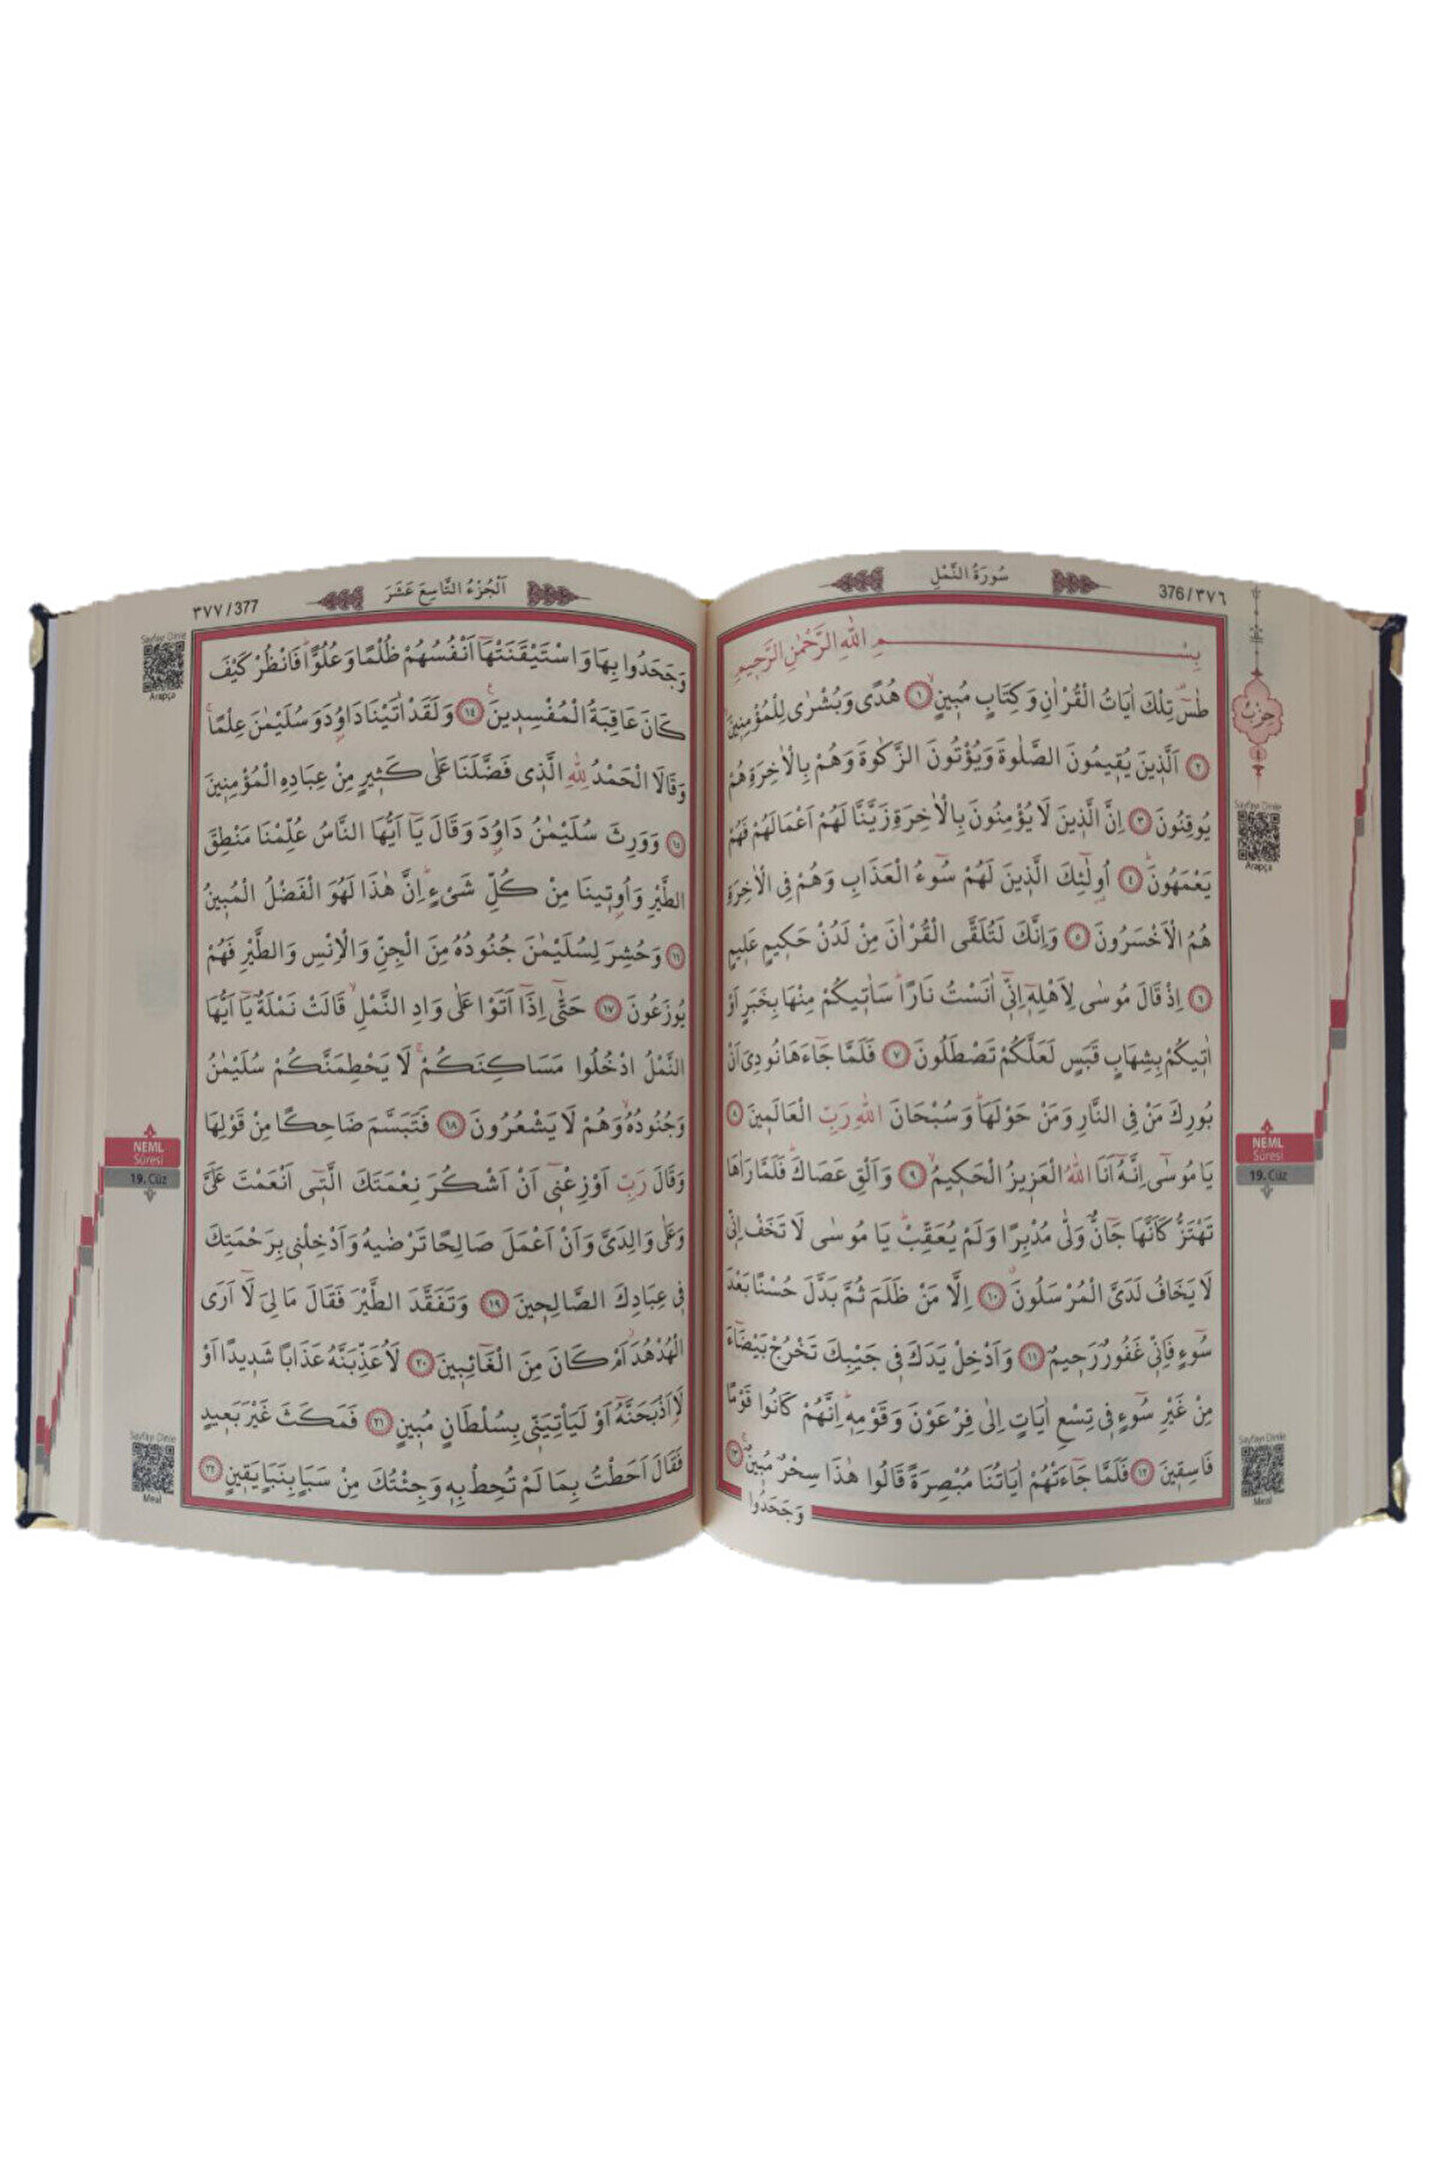 376/٣٧٦
سُورَةُ النَّمْلِ
بِسْمِ اللّٰهِ الرَّحْمٰنِ الرَّحٖيمِ
طٰسٓ تِلْكَ اٰيَاتُ الْقُرْاٰنِ وَكِتَابٍ مُبٖينٍۙ ﴿١﴾ هُدًى وَبُشْرٰى لِلْمُؤْمِنٖينَۙ
﴿٢﴾ اَلَّذٖينَ يُقٖيمُونَ الصَّلٰوةَ وَيُؤْتُونَ الزَّكٰوةَ وَهُمْ بِالْاٰخِرَةِ هُمْ
يُوقِنُونَ ﴿٣﴾ اِنَّ الَّذٖينَ لَا يُؤْمِنُونَ بِالْاٰخِرَةِ زَيَّنَّا لَهُمْ اَعْمَالَهُمْ فَهُمْ
يَعْمَهُونَۜ ﴿٤﴾ اُو۬لٰٓئِكَ الَّذٖينَ لَهُمْ سُٓوءُ الْعَذَابِ وَهُمْ فِي الْاٰخِرَةِ
هُمُ الْاَخْسَرُونَ ﴿٥﴾ وَاِنَّكَ لَتُلَقَّى الْقُرْاٰنَ مِنْ لَدُنْ حَكٖيمٍ عَلٖيمٍ
﴿٦﴾ اِذْ قَالَ مُوسٰى لِاَهْلِهٖٓ اِنّٖٓي اٰنَسْتُ نَارًاۜ سَاٰتٖيكُمْ مِنْهَا بِخَبَرٍ اَوْ
اٰتٖيكُمْ بِشِهَابٍ قَبَسٍ لَعَلَّكُمْ تَصْطَلُونَ ﴿٧﴾ فَلَمَّا جَٓاءَهَا نُودِيَ اَنْ
بُورِكَ مَنْ فِي النَّارِ وَمَنْ حَوْلَهَاۜ وَسُبْحَانَ اللّٰهِ رَبِّ الْعَالَمٖينَ ﴿٨﴾
يَا مُوسٰٓى اِنَّهُٓ اَنَا اللّٰهُ الْعَزٖيزُ الْحَكٖيمُۙ ﴿٩﴾ وَاَلْقِ عَصَاكَۜ فَلَمَّا رَاٰهَا
تَهْتَزُّ كَاَنَّهَا جَٓانٌّ وَلّٰى مُدْبِرًا وَلَمْ يُعَقِّبْۜ يَا مُوسٰى لَا تَخَفْ اِنّٖي
لَا يَخَافُ لَدَيَّ الْمُرْسَلُونَۗ ﴿١٠﴾ اِلَّا مَنْ ظَلَمَ ثُمَّ بَدَّلَ حُسْنًا بَعْدَ
سُٓوءٍ فَاِنّٖي غَفُورٌ رَحٖيمٌ ﴿١١﴾ وَاَدْخِلْ يَدَكَ فٖي جَيْبِكَ تَخْرُجْ بَيْضَٓاءَ
مِنْ غَيْرِ سُٓوءٍ فٖي تِسْعِ اٰيَاتٍ اِلٰى فِرْعَوْنَ وَقَوْمِهٖۜ اِنَّهُمْ كَانُوا قَوْمًا
فَاسِقٖينَ ﴿١٢﴾ فَلَمَّا جَٓاءَتْهُمْ اٰيَاتُنَا مُبْصِرَةً قَالُوا هٰذَا سِحْرٌ مُبٖينٌۚ ﴿١٣﴾
وَجَحَدُوا
حِزْبُ
٤
Sayfayı Dinle
Arapça
NEML
Sûresi
19. Cüz
Sayfayı Dinle
Meal
٣٧٧/377
اَلْجُزْءُ التَّاسِعَ عَشَرَ
وَجَحَدُوا بِهَا وَاسْتَيْقَنَتْهَٓا اَنْفُسُهُمْ ظُلْمًا وَعُلُوًّاۜ فَانْظُرْ كَيْفَ
كَانَ عَاقِبَةُ الْمُفْسِدٖينَ۟ ﴿١٤﴾ وَلَقَدْ اٰتَيْنَا دَاوُ۫دَ وَسُلَيْمٰنَ عِلْمًاۚ
وَقَالَا الْحَمْدُ لِلّٰهِ الَّذٖي فَضَّلَنَا عَلٰى كَثٖيرٍ مِنْ عِبَادِهِ الْمُؤْمِنٖينَ
﴿١٥﴾ وَوَرِثَ سُلَيْمٰنُ دَاوُ۫دَ وَقَالَ يَٓا اَيُّهَا النَّاسُ عُلِّمْنَا مَنْطِقَ
الطَّيْرِ وَاُو۫تٖينَا مِنْ كُلِّ شَيْءٍۜ اِنَّ هٰذَا لَهُوَ الْفَضْلُ الْمُبٖينُ
﴿١٦﴾ وَحُشِرَ لِسُلَيْمٰنَ جُنُودُهُ مِنَ الْجِنِّ وَالْاِنْسِ وَالطَّيْرِ فَهُمْ
يُوزَعُونَ ﴿١٧﴾ حَتّٰٓى اِذَٓا اَتَوْا عَلٰى وَادِ النَّمْلِۙ قَالَتْ نَمْلَةٌ يَٓا اَيُّهَا
النَّمْلُ ادْخُلُوا مَسَاكِنَكُمْۚ لَا يَحْطِمَنَّكُمْ سُلَيْمٰنُ
وَجُنُودُهُۙ وَهُمْ لَا يَشْعُرُونَ ﴿١٨﴾ فَتَبَسَّمَ ضَاحِكًا مِنْ قَوْلِهَا
وَقَالَ رَبِّ اَوْزِعْنٖٓي اَنْ اَشْكُرَ نِعْمَتَكَ الَّتٖٓي اَنْعَمْتَ عَلَيَّ
وَعَلٰى وَالِدَيَّ وَاَنْ اَعْمَلَ صَالِحًا تَرْضٰيهُ وَاَدْخِلْنٖي بِرَحْمَتِكَ
فٖي عِبَادِكَ الصَّالِحٖينَ ﴿١٩﴾ وَتَفَقَّدَ الطَّيْرَ فَقَالَ مَا لِيَ لَٓا اَرَى
الْهُدْهُدَۘ اَمْ كَانَ مِنَ الْغَٓائِبٖينَ ﴿٢٠﴾ لَاُعَذِّبَنَّهُ عَذَابًا شَدٖيدًا اَوْ
لَا۬اَذْبَحَنَّهُٓ اَوْ لَيَأْتِيَنّٖي بِسُلْطَانٍ مُبٖينٍ ﴿٢١﴾ فَمَكَثَ غَيْرَ بَعٖيدٍ
فَقَالَ اَحَطْتُ بِمَا لَمْ تُحِطْ بِهٖ وَجِئْتُكَ مِنْ سَبَأٍ بِنَبَأٍ يَقٖينٍ ﴿٢٢﴾
Sayfayı Dinle
Arapça
NEML
Sûresi
19. Cüz
Sayfayı Dinle
Meal